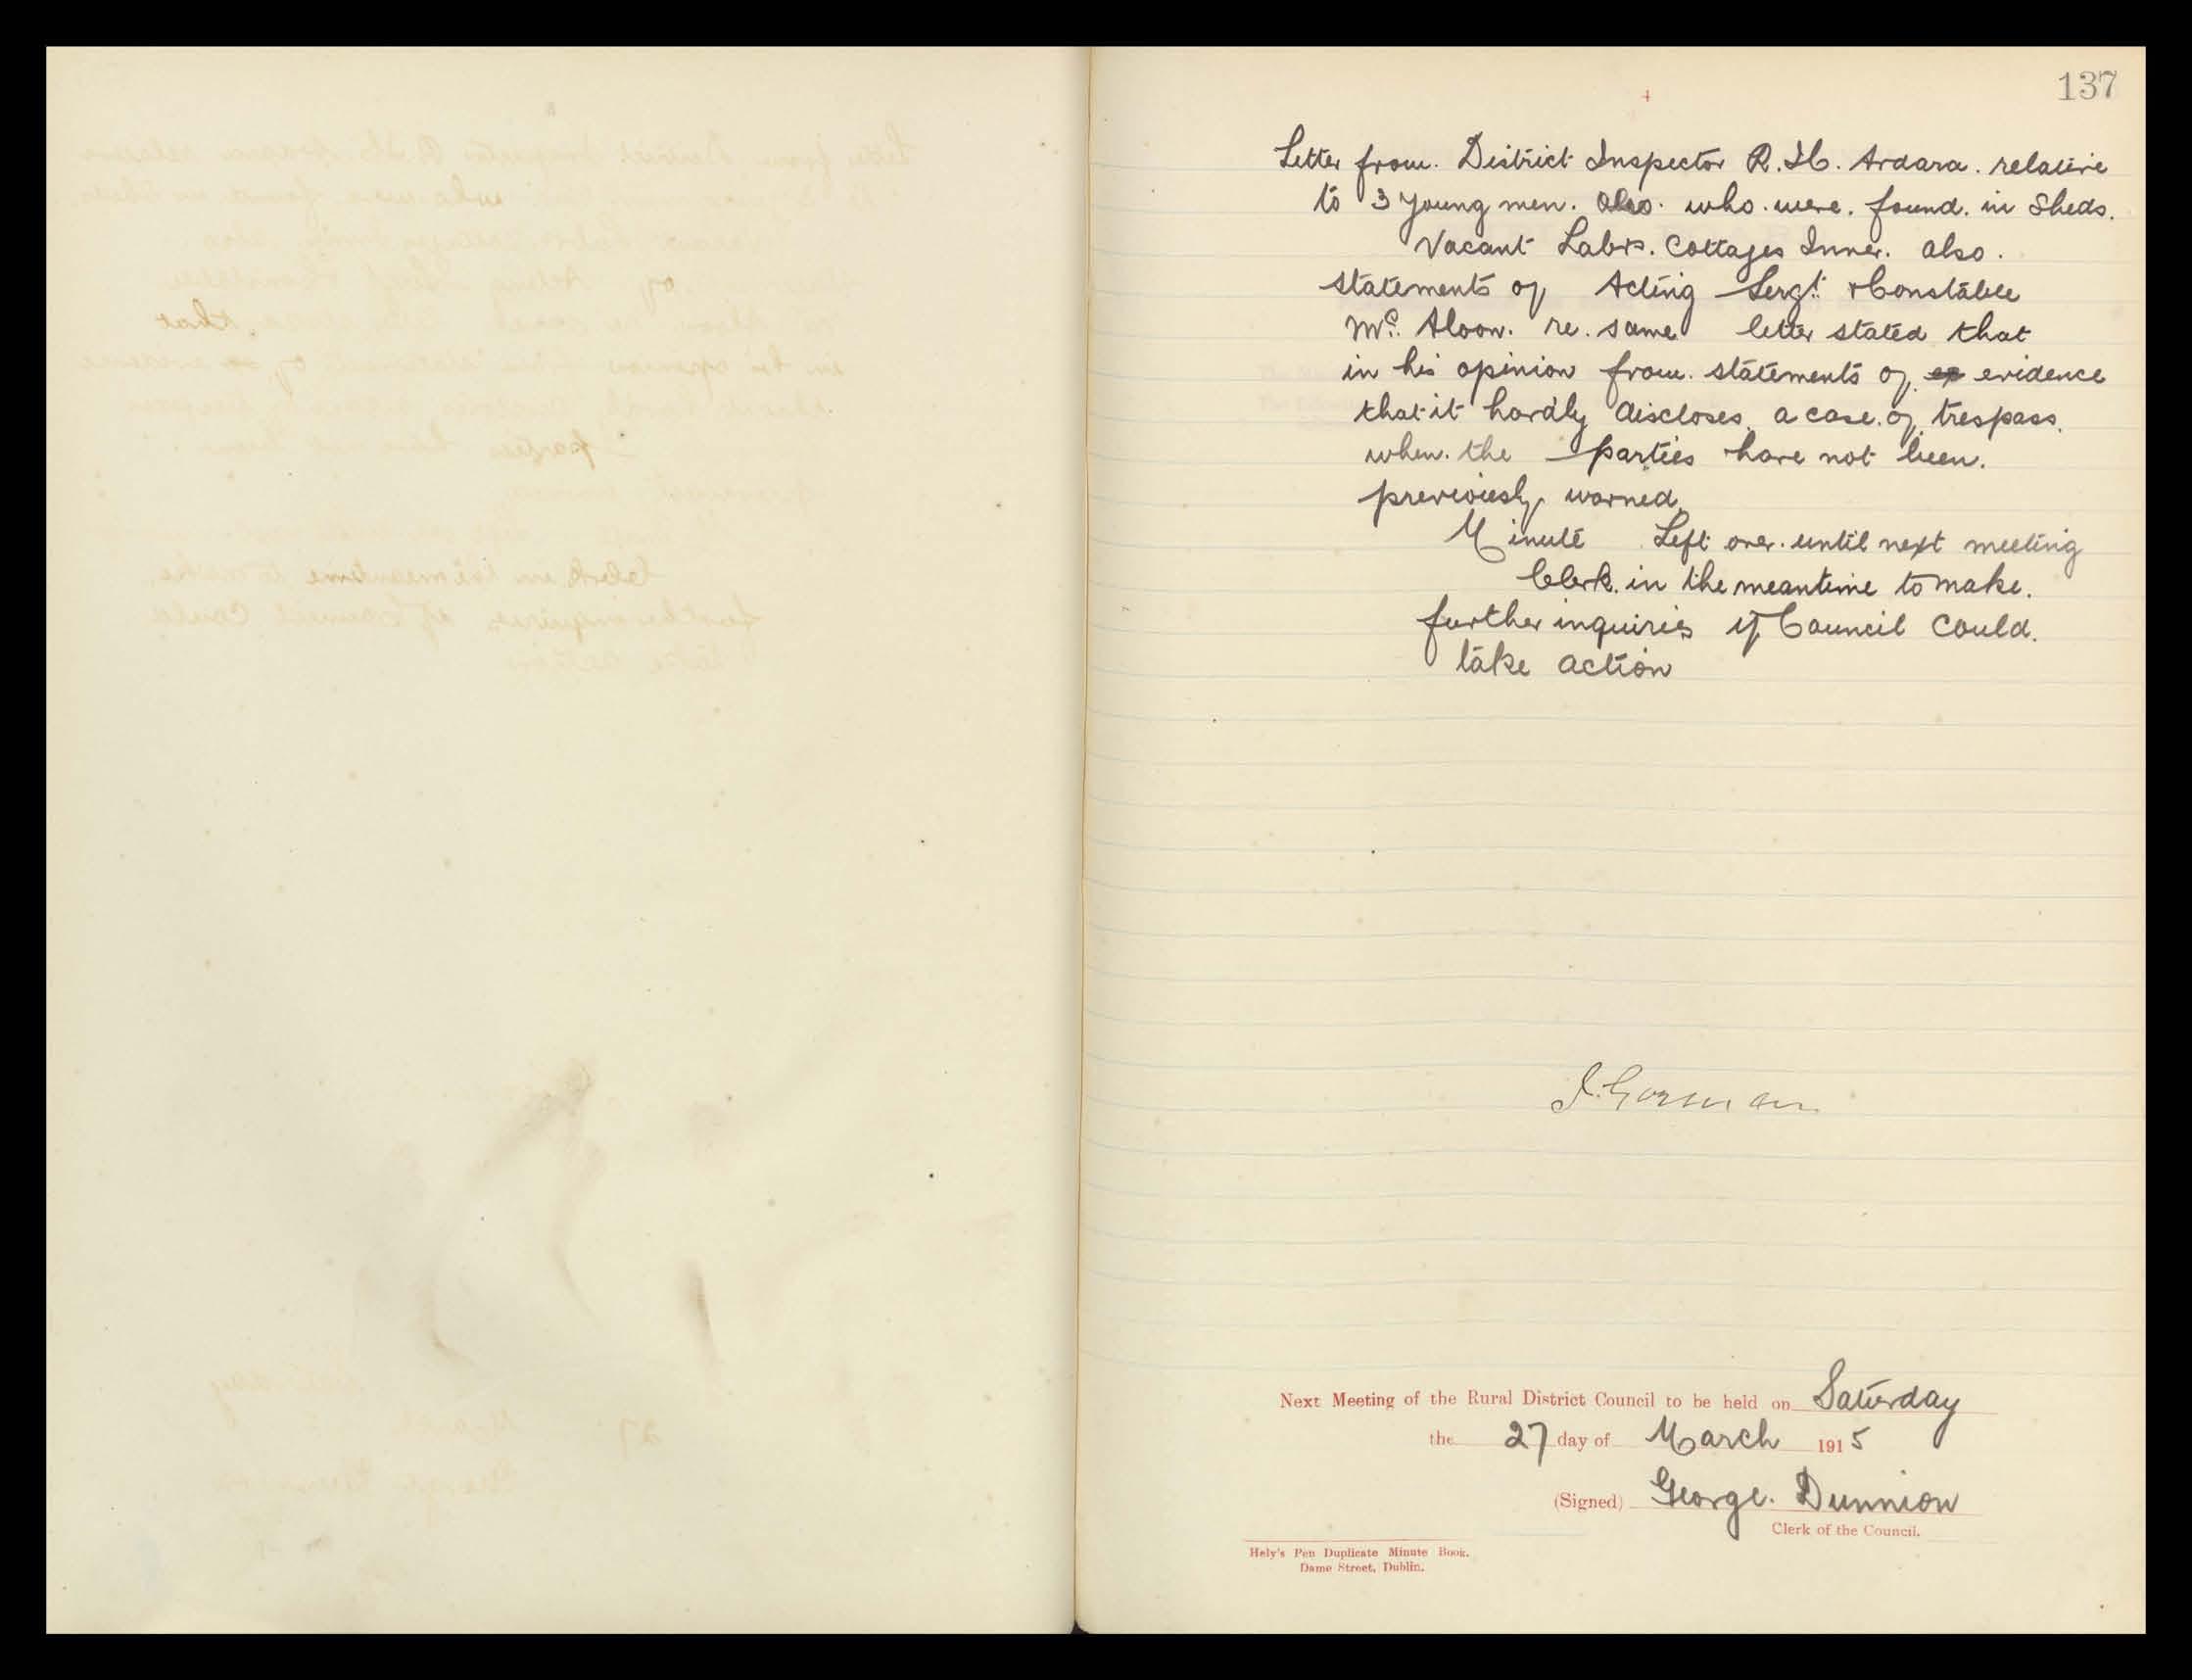 137
4
Letter from. District Inspector R.I.C. Ardara. relative
to 3 young men. also. who. were. found. in Sheds.
Vacant Labrs. Cottages Inver. also.
statements of Acting Sergt. & Constable
Mc. Aloon. re. same letter stated that
in his opinion from. statements of evidence
that it hardly discloses. a case. of trespass.
when. the parties have not been.
previously warned.
Minute Left over. until next meeting
Clerk. in the meantime to make.
further inquiries if Council could.
take action
J. Gorman
Next Meeting of the Rural District Council to be held on Saturday
the 27 day of March 1915
(Signed) George. Dunnion
Clerk of the Council.
Hely's Pen Duplicate Minute Book.
Dame Street, Dublin.